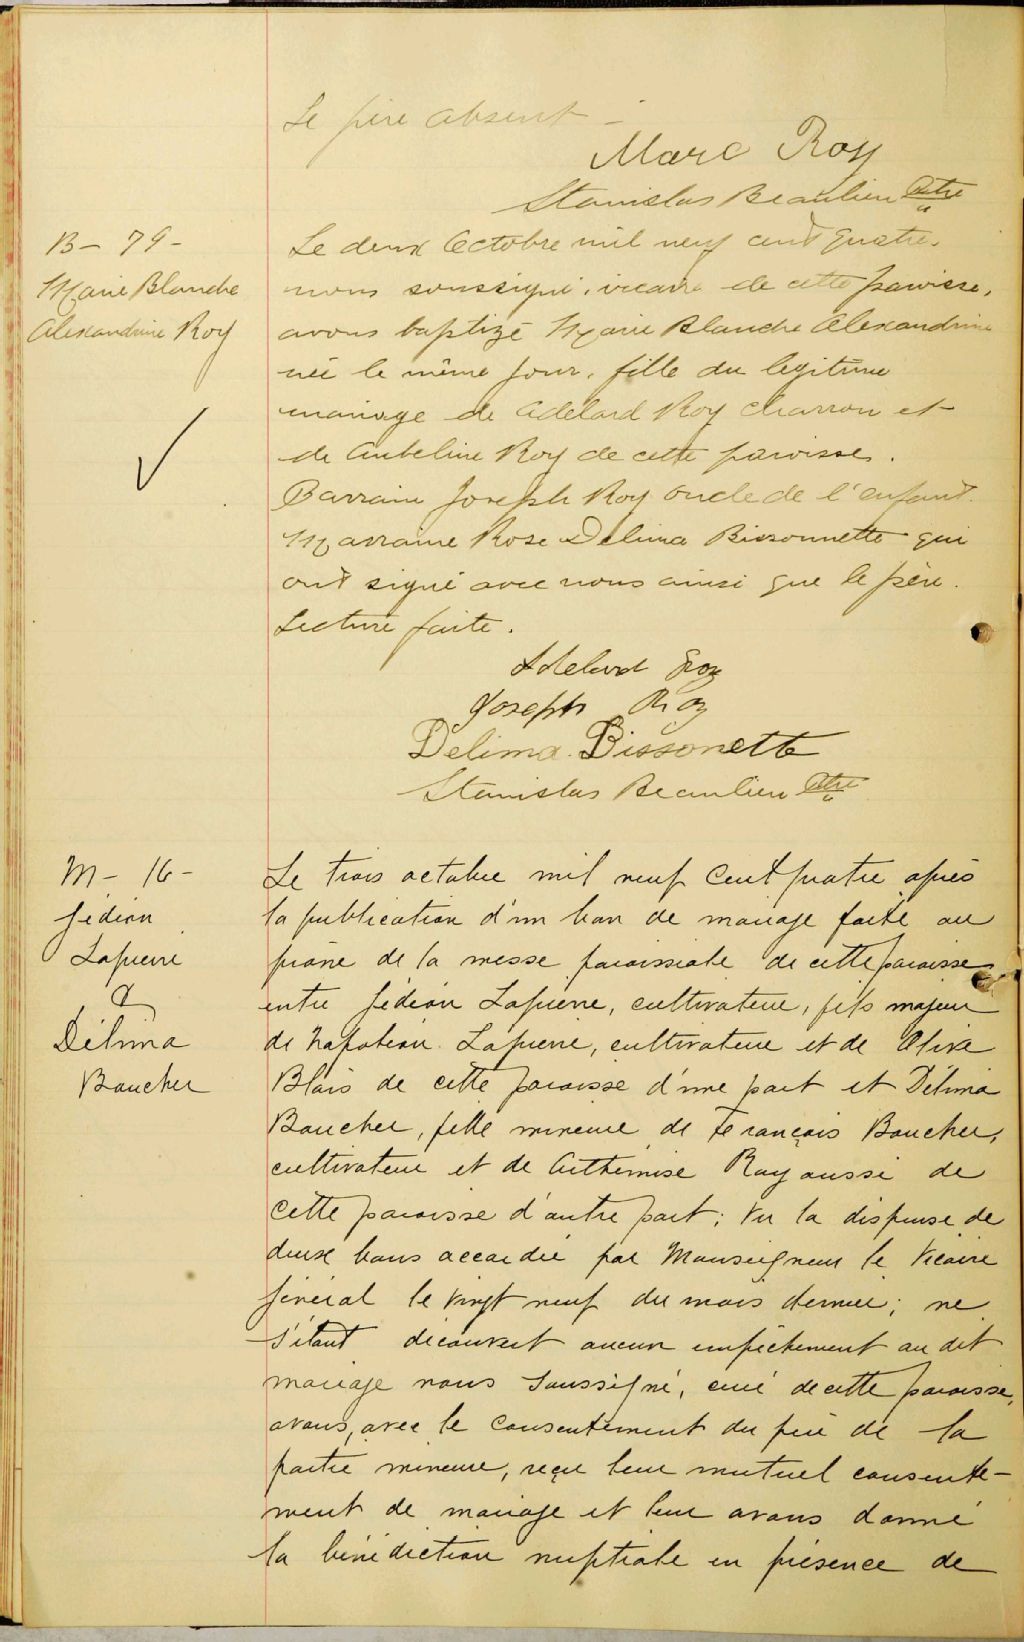 Le père absent –
Marc Roy
Stanislas Beaulieu Ptre
B – 79 –
Marie Blanche
Alexandrine Roy
Le deux Octobre mil neuf cent quatre,
nous soussigné, vicaire de cette paroisse,
avons baptizé Marie Blanche Alexandrine
née le même jour, fille du légitime
mariage de Adélard Roy charron et
de Aubeline Roy de cette paroisse.
Parrain Joseph Roy oncle de l'enfant.
Marraine Rose Delima Bissonnette qui
ont signé avec nous ainsi que le père.
Lecture faite.
Adelard Roy
Joseph Roy
Delima Bissonette
Stanislas Beaulieu Ptre
M – 16 –
Gédéon
Lapierre
&
Délima
Boucher
Le trois octobre mil neuf cent quatre après
la publication d'un ban de mariage faite au
prône de la messe paroissiale de cette paroisse
entre Gédéon Lapierre, cultivateur, fils majeur
de Napoléon Lapierre, cultivateur et de Olive
Blais de cette paroisse d'une part et Délima
Boucher, fille mineure de François Boucher,
cultivateur et de Arthémise Roy aussi de
cette paroisse d'autre part; vu la dispense de
deux bans accordée par Monseigneur le Vicaire
Général le vingt neuf du mois dernier; ne
s'étant découvert aucun empêchement au dit
mariage nous soussigné, curé de cette paroisse,
avons, avec le consentement du père de la
partie mineure, reçu leur mutuel consente-
ment de mariage et leur avons donné
la bénédiction nuptiale en présence de